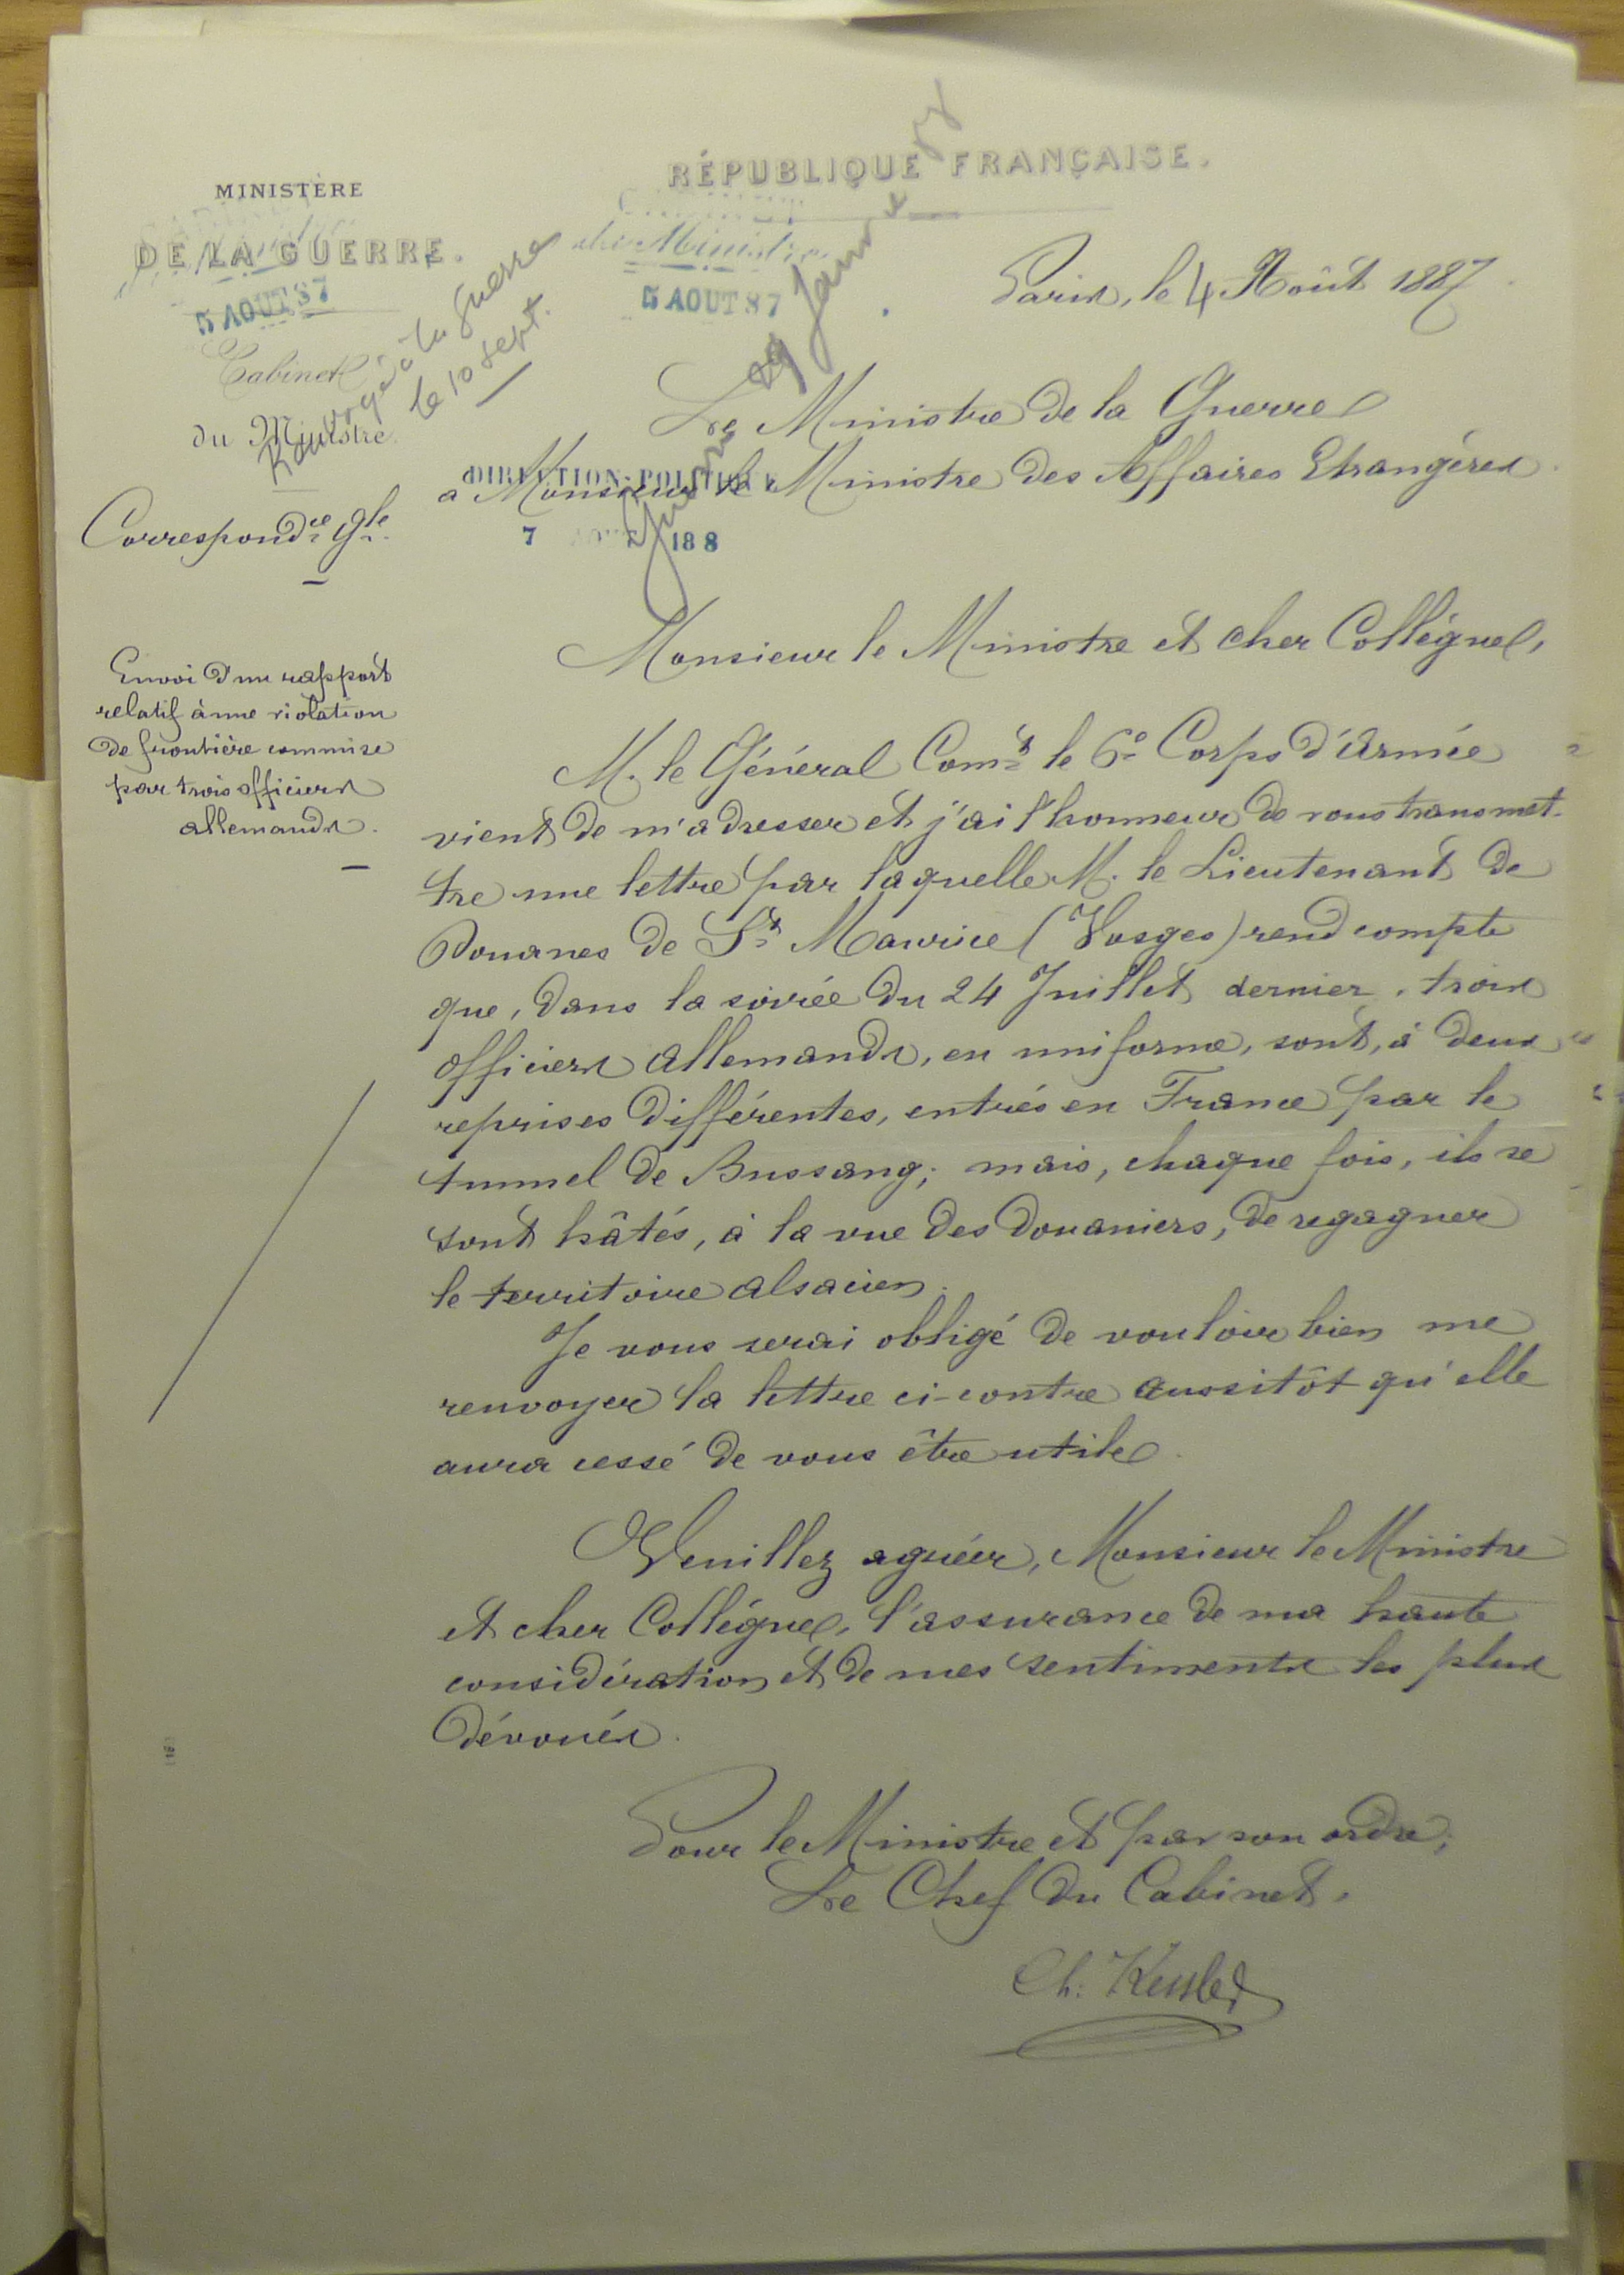 RÉPUBLIQUE FRANÇAISE.
MINISTÈRE
DE LA GUERRE.
5 AOUT 87
Cabinet
du Ministre.
Renvoyé à la Guerre
le 10 sept.
Correspondce gle.
du Ministre
5 AOUT 87
Paris, le 4 Août 1887
Le Ministre de la Guerre
à Monsieur le Ministre des Affaires Etrangères.
DIRECTION POLITIQUE
7 188
Envoi d'un rapport
relatif à une violation
de frontière commise
par trois officiers
allemands.
Monsieur le Ministre et cher Collègue,
M. le Général Comdt le 6e Corps d'Armée
vient de m'adresser et j'ai l'honneur de vous transmet-
tre une lettre par laquelle M. le Lieutenant de
Douanes de St Maurice (Vosges) rend compte
que, dans la soirée du 24 Juillet dernier, trois
officiers allemands, en uniforme, sont, à deux
reprises différentes, entrés en France par le
tunnel de Bussang; mais, chaque fois, ils se
sont hâtés, à la vue des douaniers, de regagner
le territoire alsacien.
Je vous serai obligé de vouloir bien me
renvoyer la lettre ci-contre aussitôt qu'elle
aura cessé de vous être utile.
Veuillez agréer, Monsieur le Ministre
et cher Collègue, l'assurance de ma haute
considération et de mes sentiments les plus
dévoués.
Pour le Ministre et par son ordre,
Le Chef du Cabinet,
Ch. Kessler